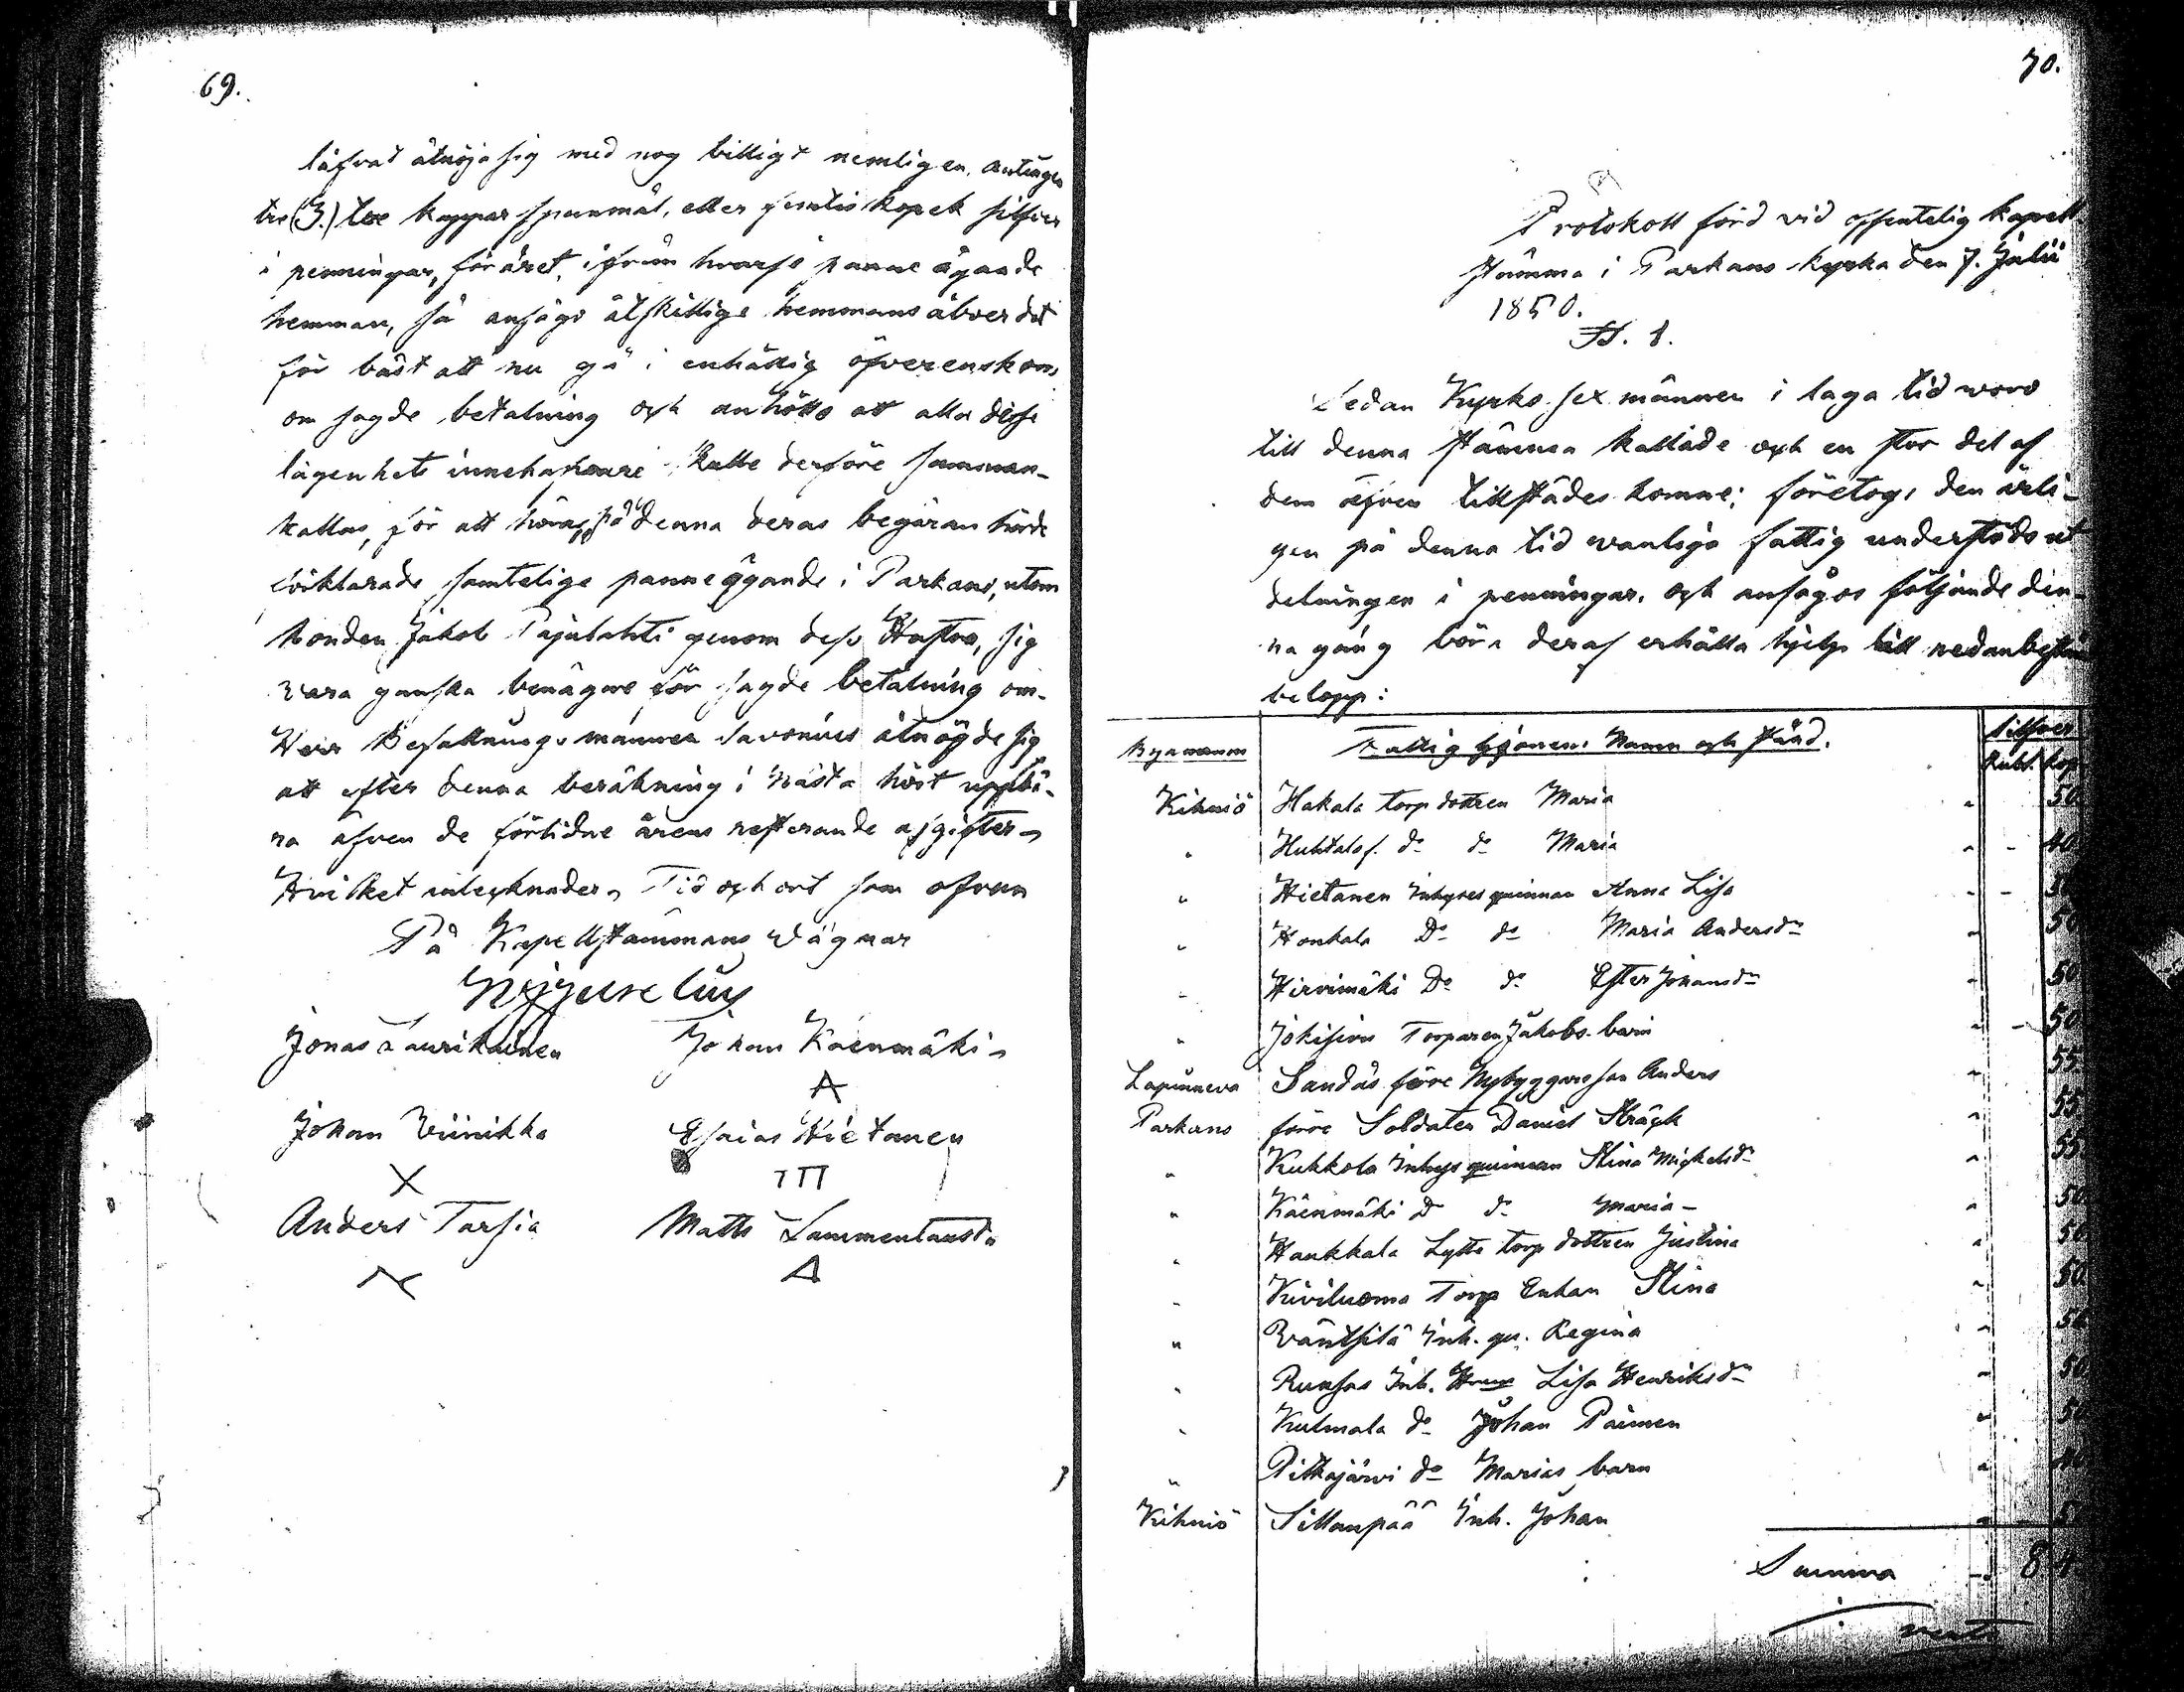 69.
låfvat åtnöja sig med nog billigt nemligen, antingen
tre (3.) tre kappar spanmål, eller femtio kopek silfver
i penningar, för året, ifrån hvarje panne ägande
hemman, så ansågo åtskillige hemmans åboer det
för bäst att nu gå i enhällig öfverenskom
om sagde betalning och anhöllo att alla desse
lägenhets innehafvare skulle derföre samman-
kallas, för att höras, på denna deras begäran
förklarade samtelige panneägande i Parkano, utom
bonden Jakob Pajulahti genom dess Hustru, sig
vara ganska benägne för sagde betalning om-
Herr Befallningsmannen Savonius åtnögde sig
att efter denna beräkning i nästa höst uppbä-
ra äfven de förlidne årens resterande afgifter,
Hvilket intecknades, Tid och ort som ofvan
På Kapellstämmans vägnar
Jonas Laurikainen Johan Käenmäki
Johan Viinikka Esaias Hietanen
X
Anders Tarsia Matts
70.
Protokoll förd vid offentelig kapell
stämma i Parkano kyrka den 7. Julii
1850.
§. 1.
Sedan Kyrko sex männen i laga tid word
till denna stämma kallade och en stor del af
dem äfven tillstädes komne; företogs den årli-
gen på denna tid vanliga fattig understöds ut
delningen i penningar, och ansågos följande den-
na gång böra deraf erhålla hjelp till nedanbestäm
belopp:
Byanamn Fattig hjonens Namn och stånd. Silfver
Rubl. kop
Kihniö Hakala torp dottren Maria " 50
" Huhtalas. do do Maria " - 40
" Hietanen Inhyses quinnan Anna Lisa " -
" Honkala Do do Maria Andersdr " 50
" Hirvimäki Do do Ester Johansdr " 50
" Jokisivu Torparen Jakobs barn " - 50
Lapinneva Sandås förre Nybyggare son Anders " 55
Parkano förre Soldaten Daniel Sträck " 55
" Kukkola Inhys quinnan Stina Michelsdr " 55
" Käenmäki D do Maria - " 50
" Haukkala Lytte torp dottren Justina " 50
" Kiviluoma Torp Enkan Stina " 50
" Väntsilä Inh. qv. Regina "
" Runsas Inh. Lisa Henriksdr " 50
" Kulmala do Johan Painen " 50
" Pitkäjärvi do Marias barn " 40
Kihniö Sillanpää Inh. Johan "
Summa - 8